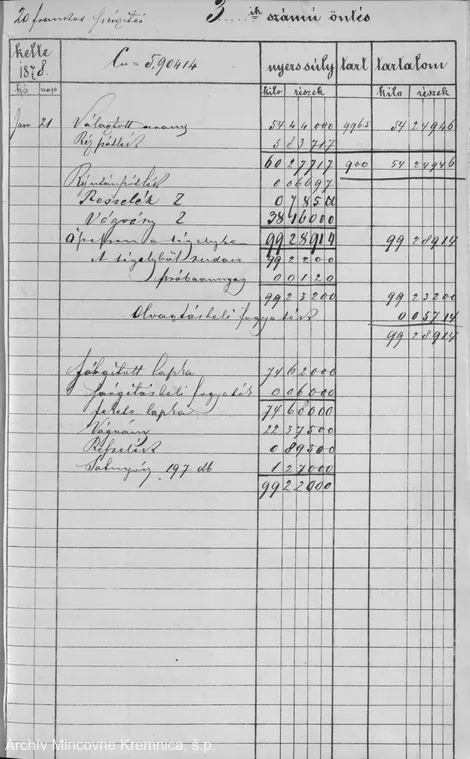 20 frankos pénzítés 3 ik számú öntés
kelte 1878. Cu = 5,90414 nyerssúly tart tartalom
hó nap kilo részek kilo részek
Jan 21 Választott arany 54 44000 9965 54 24946
Rézpótlék 5 83717
60 27717 900 54 24946
0 06697
Reszelék Z 0 78500
Vágvány Z 38 16000
99 28914 99 28914
A tégelyből 99 2200
próbaarany 0 0120
99 23200 99 23200
Olvasztásbeli fogyaték 0 05714
99 28914
lapka 74 62000
fogyaték 0 06000
fekete lapka 74 68000
Vágvány 22 37500
Reszelék 0 89500
197 db 1 27000
99 22000
Archív Mincovne Kremnica, š.p.